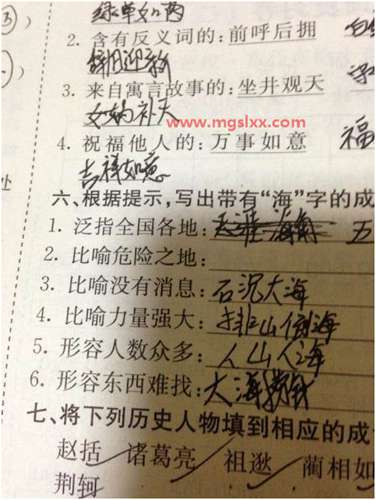 绿草如茵
2. 含有反义词的: 前呼后拥
辞旧迎新
3. 来自寓言故事的: 坐井观天
女娲补天
www.mgslxx.com
4. 祝福他人的: 万事如意 福
吉祥如意
六、根据提示,写出带有“海”字的成
1. 泛指全国各地: 天涯海角 五
2. 比喻危险之地:
3. 比喻没有消息: 石沉大海
4. 比喻力量强大: 排山倒海
5. 形容人数众多: 人山人海
6. 形容东西难找: 大海捞针
七、将下列历史人物填到相应的成
赵括 诸葛亮 祖逖 蔺相如
荆轲